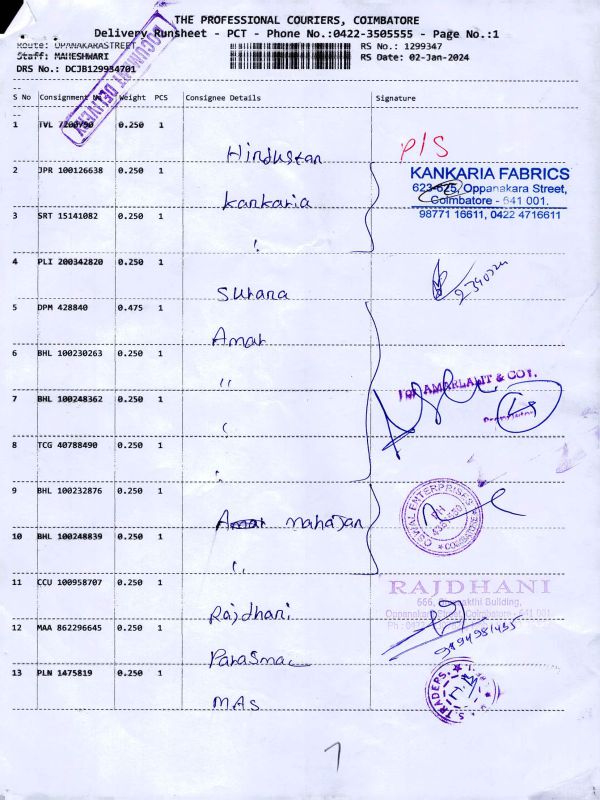 THE PROFESSIONAL COURIERS, COIMBATORE
Delivery Runsheet - PCT - Phone No.:0422-3505555 - Page No.:1
Route: OPANAKARASTREET
RS No.: 1299347
Staff: MAHESHWARI
RS Date: 02-Jan-2024
DRS No.: DCJB129934701
DOCUMENT DELIVERY
S No Consignment No Weight PCS Consignee Details Signature
1 TVL 7200790 0.250 1 Hindustan P/S
2 JPR 100126638 0.250 1 Kankaria
KANKARIA FABRICS
623-625, Oppanakara Street,
Coimbatore - 641 001.
98771 16611, 0422 4716611
3 SRT 15141082 0.250 1
4 PLI 200342820 0.250 1
5 DPM 428840 0.475 1 Amar
6 BHL 100230263 0.250 1 "
7 BHL 100248362 0.250 1
AMARLALIT & CO
8 TCG 40788490 0.250 1
9 BHL 100232876 0.250 1 Amar Mahajan
OSWAL ENTERPRISES
COIMBATORE
10 BHL 100248839 0.250 1
11 CCU 100958707 0.250 1 Rajdhani
RAJDHANI
Building,
Coimbatore - 641 001
12 MAA 862296645 0.250 1
13 PLN 1475819 0.250 1 MAS
S. TRADERS
1